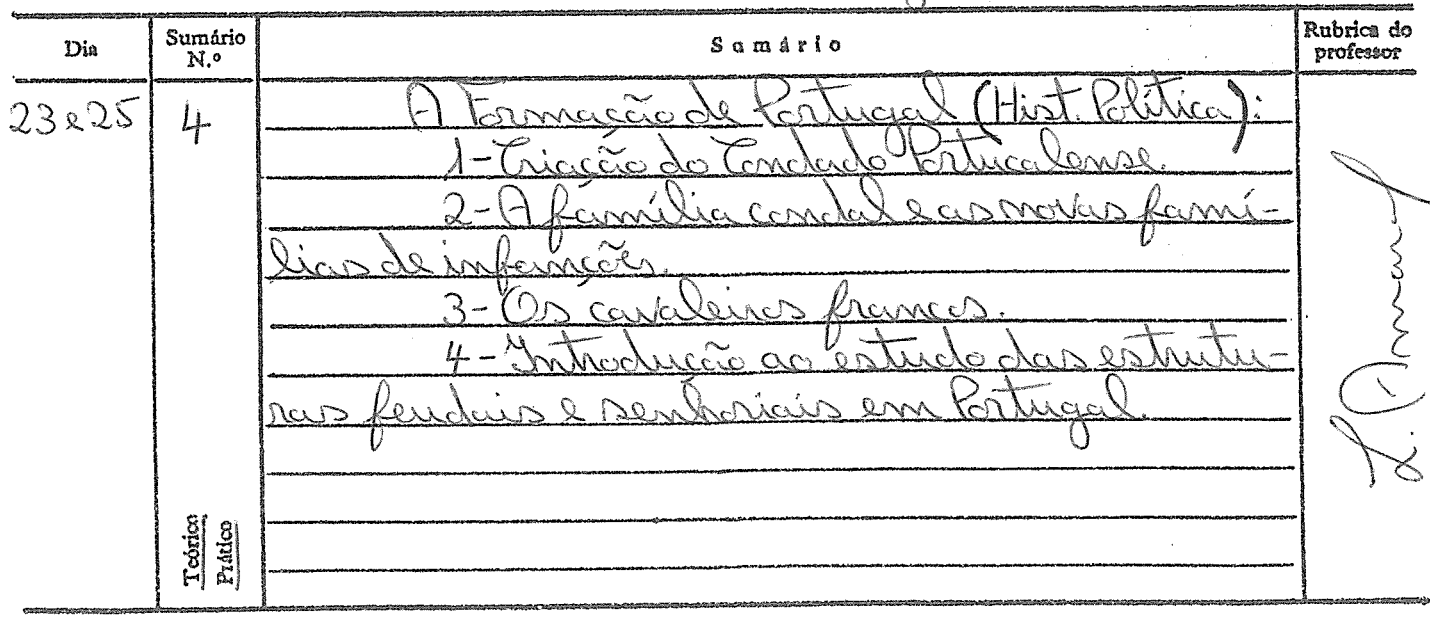 Dia
Sumário
N.º
Sumário
Rubrica do
professor
23 e 25
4
A Formação de Portugal (Hist. Política):
1- Criação do Condado Portucalense.
2- A família condal e as novas famí-
lias de infanções.
3- Os cavaleiros francos.
4- Introdução ao estudo das estrutu-
ras feudais e senhoriais em Portugal.
Teórico
Prático